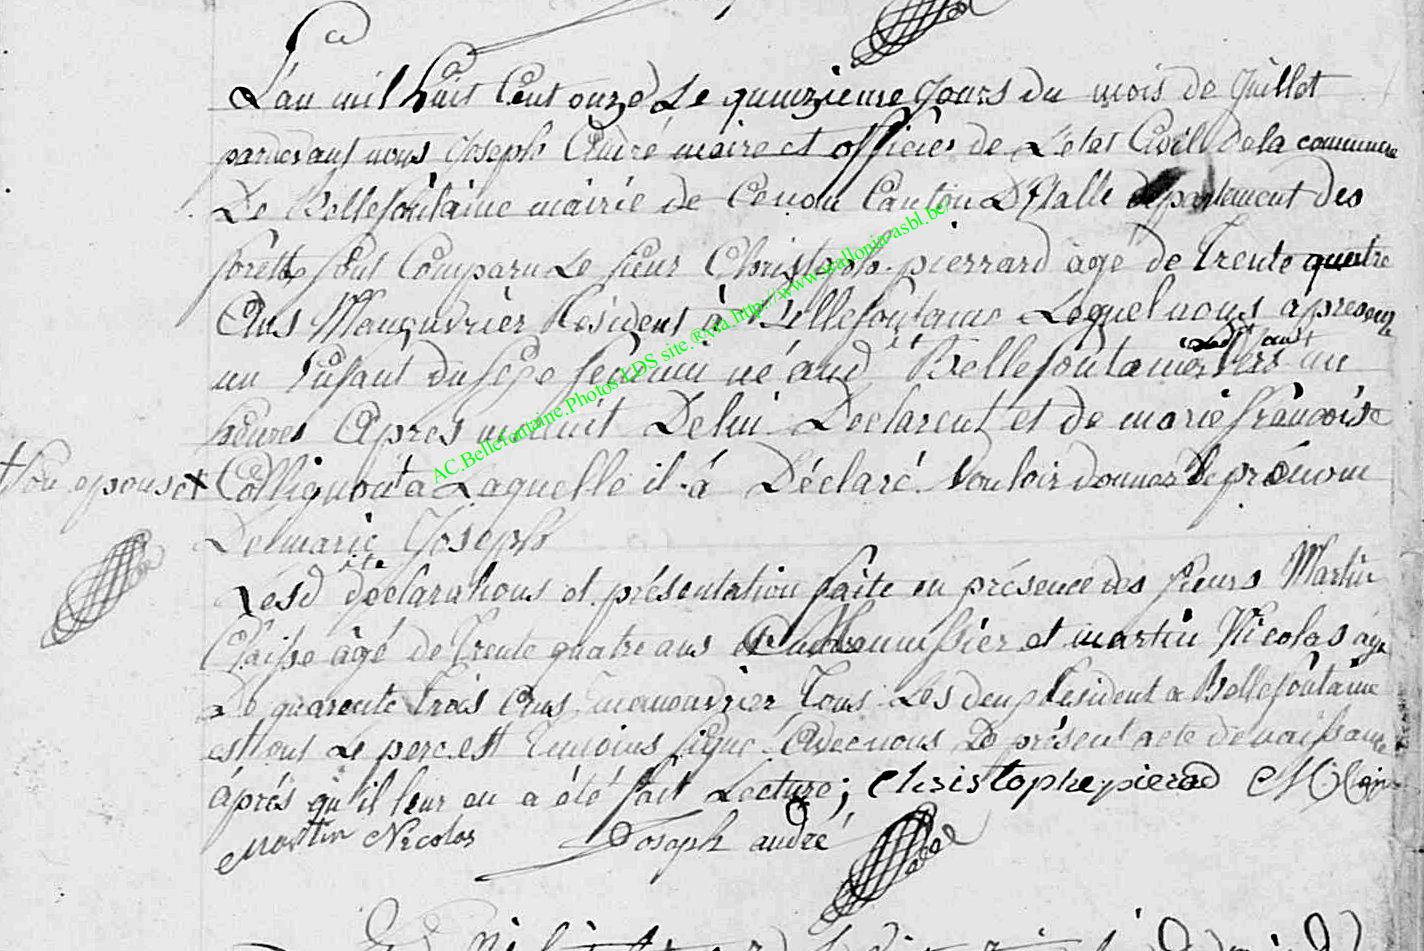 L'an mil huit Cent onze Le quinzieme Jours du mois de Juillet
pardevant nous Joseph André maire et officier de L'etat Civil de la commune
De Bellefontaine mairie de Canton D'Etalle département des
forêts sont Comparu Le sieur Christoph pierrard agé de Trente quatre
Ans Manouvrier Résident à Bellefontaine Lequel nous a présenté
un Enfant du sexe féminin né aud Bellefontaine vers un
heures Après minuit De lui Declarent et de marie françoise
son epouse
Collignon a Laquelle il à Déclaré Vouloir donner le prénom
De marie Joseph
Lesd déclarations et présentation faite en présence des sieurs Martin
Claisse âgé de Trente quatre ans et martin Nicolas agé
De quarente trois Ans manouvrier Tous Les deux Résident a Bellefontaine
et ont Le pere et Temoins signé Avec nous Le présent acte de naissance
áprés qu'il leur en a été fait Lecture; Christophe pierad
martin Nicolas Joseph andré
AC.Bellefontaine.Photos LDS site.®via http://www.wallonia-asbl.be